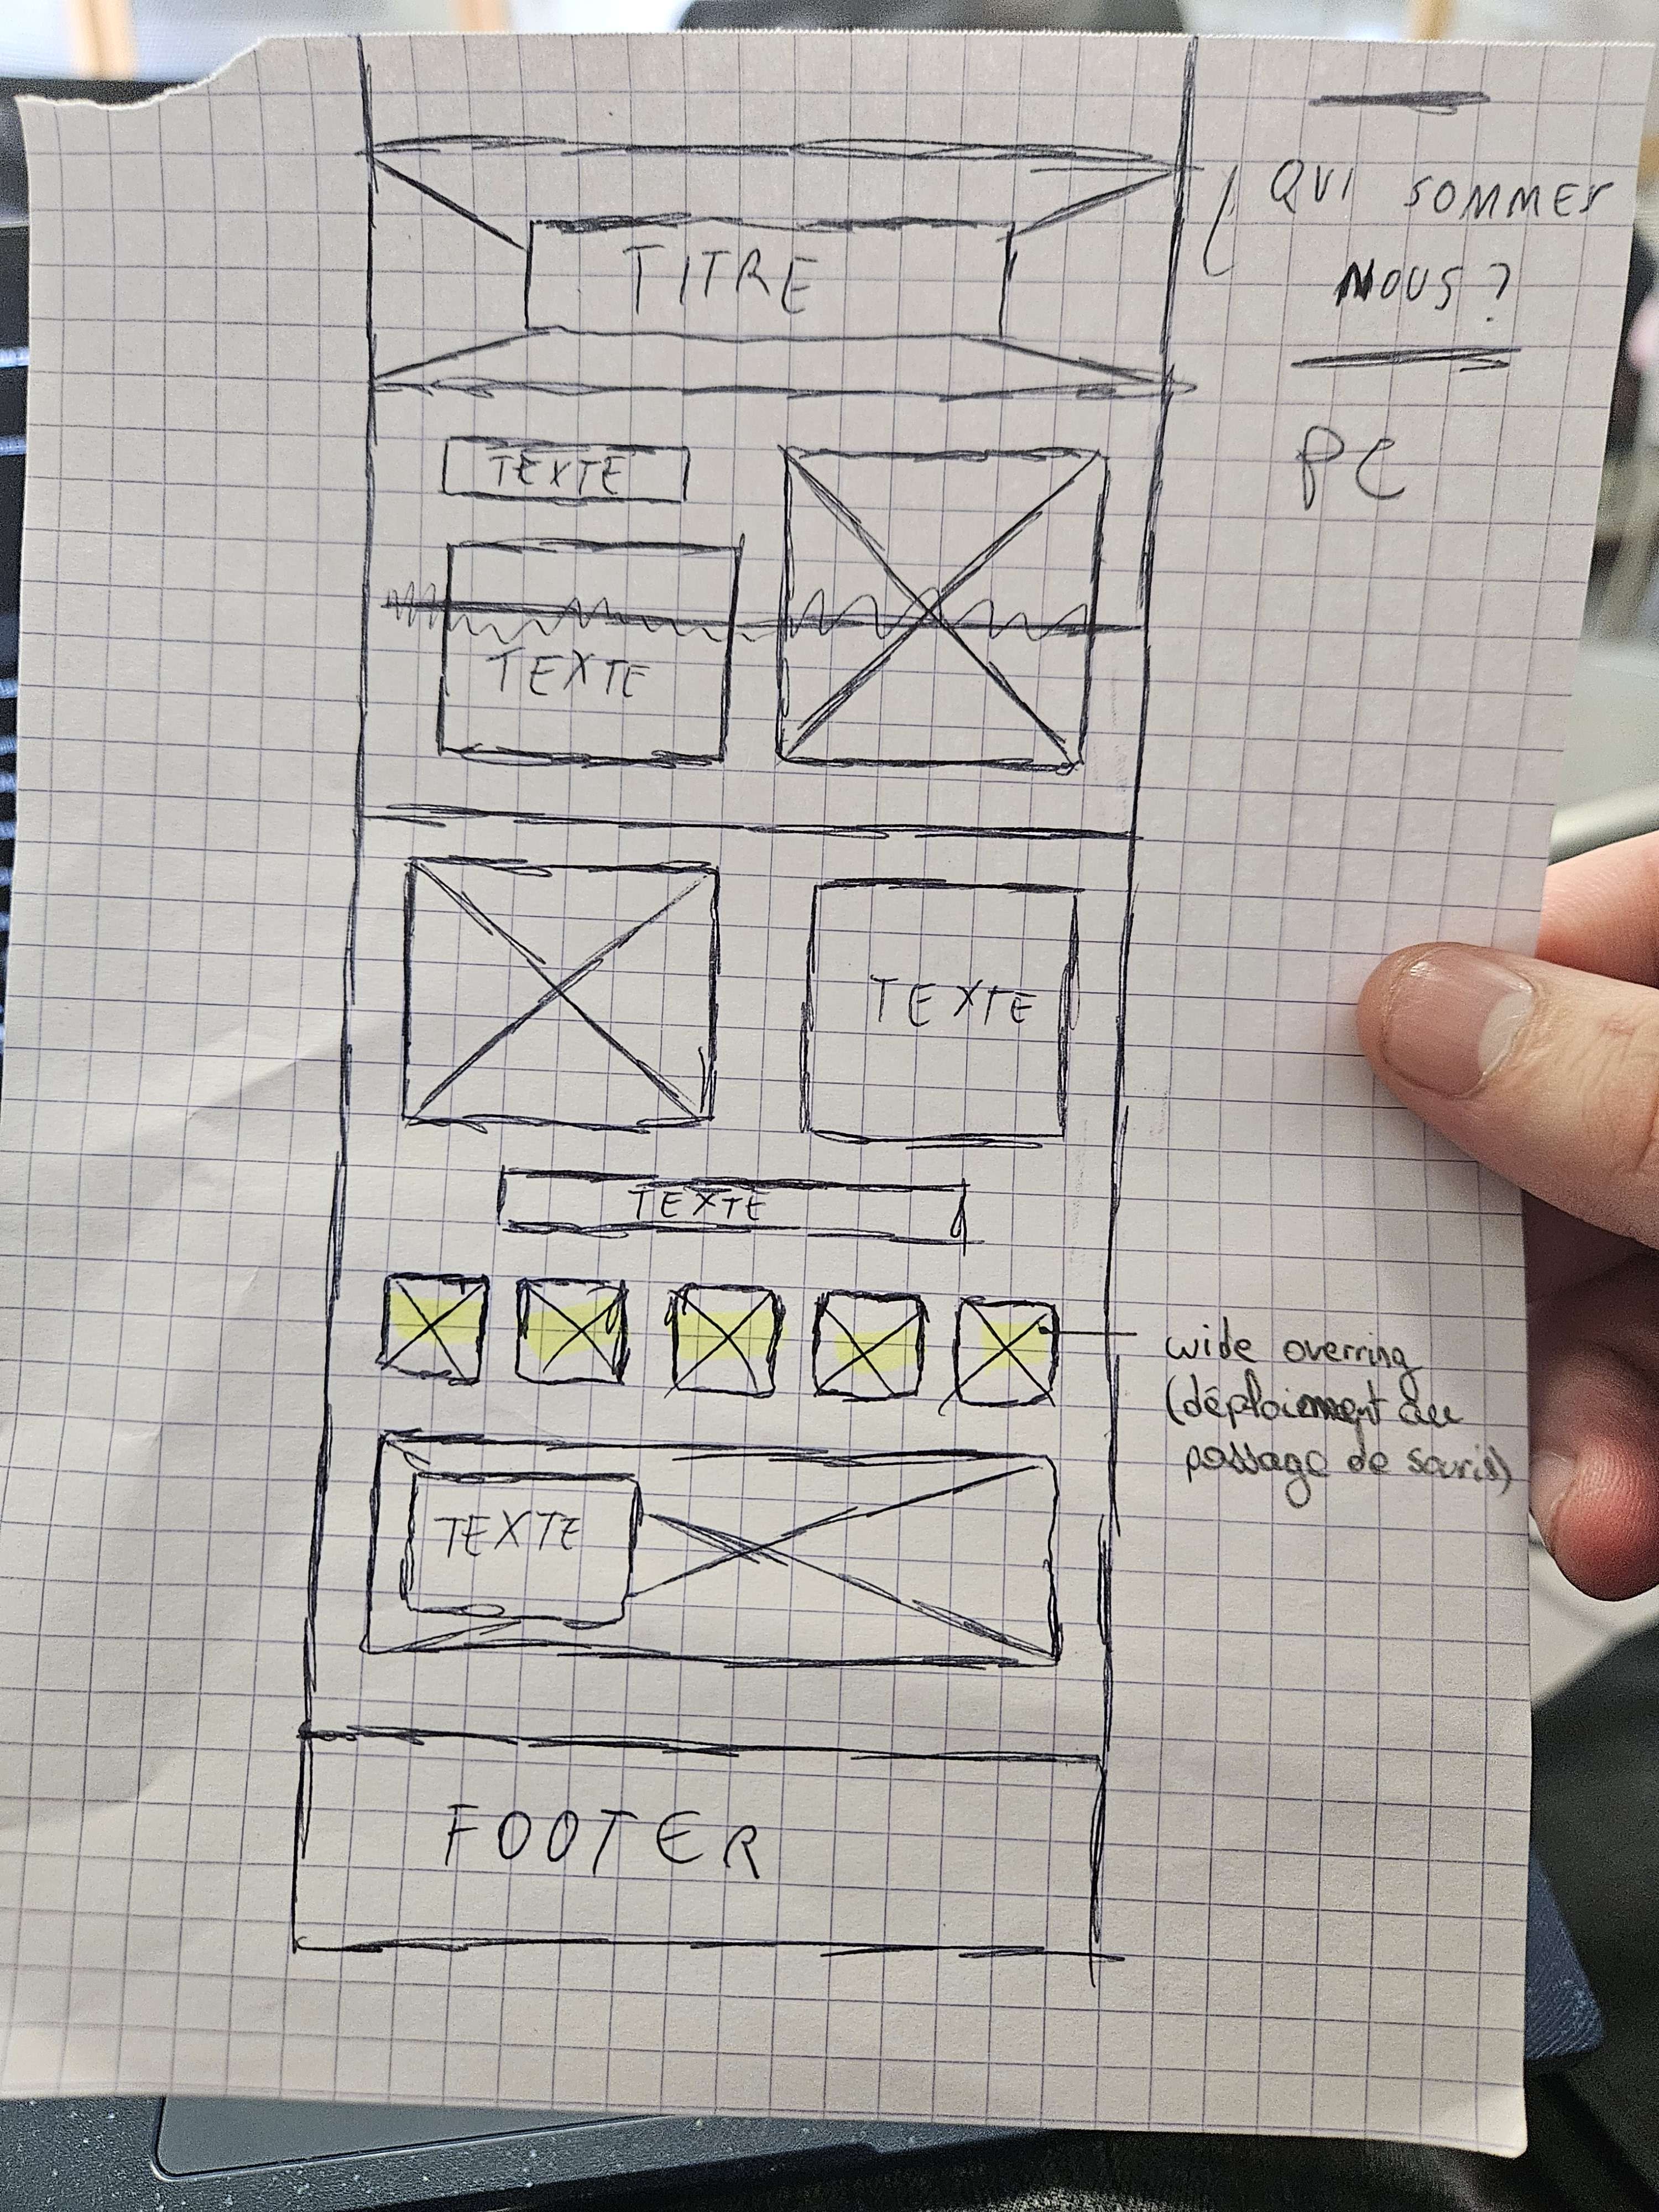 QUI SOMMES
NOUS ?
PC
TITRE
TEXTE
TEXTE
TEXTE
TEXTE
wide overring
(déploiement au
passage de souris)
TEXTE
FOOTER